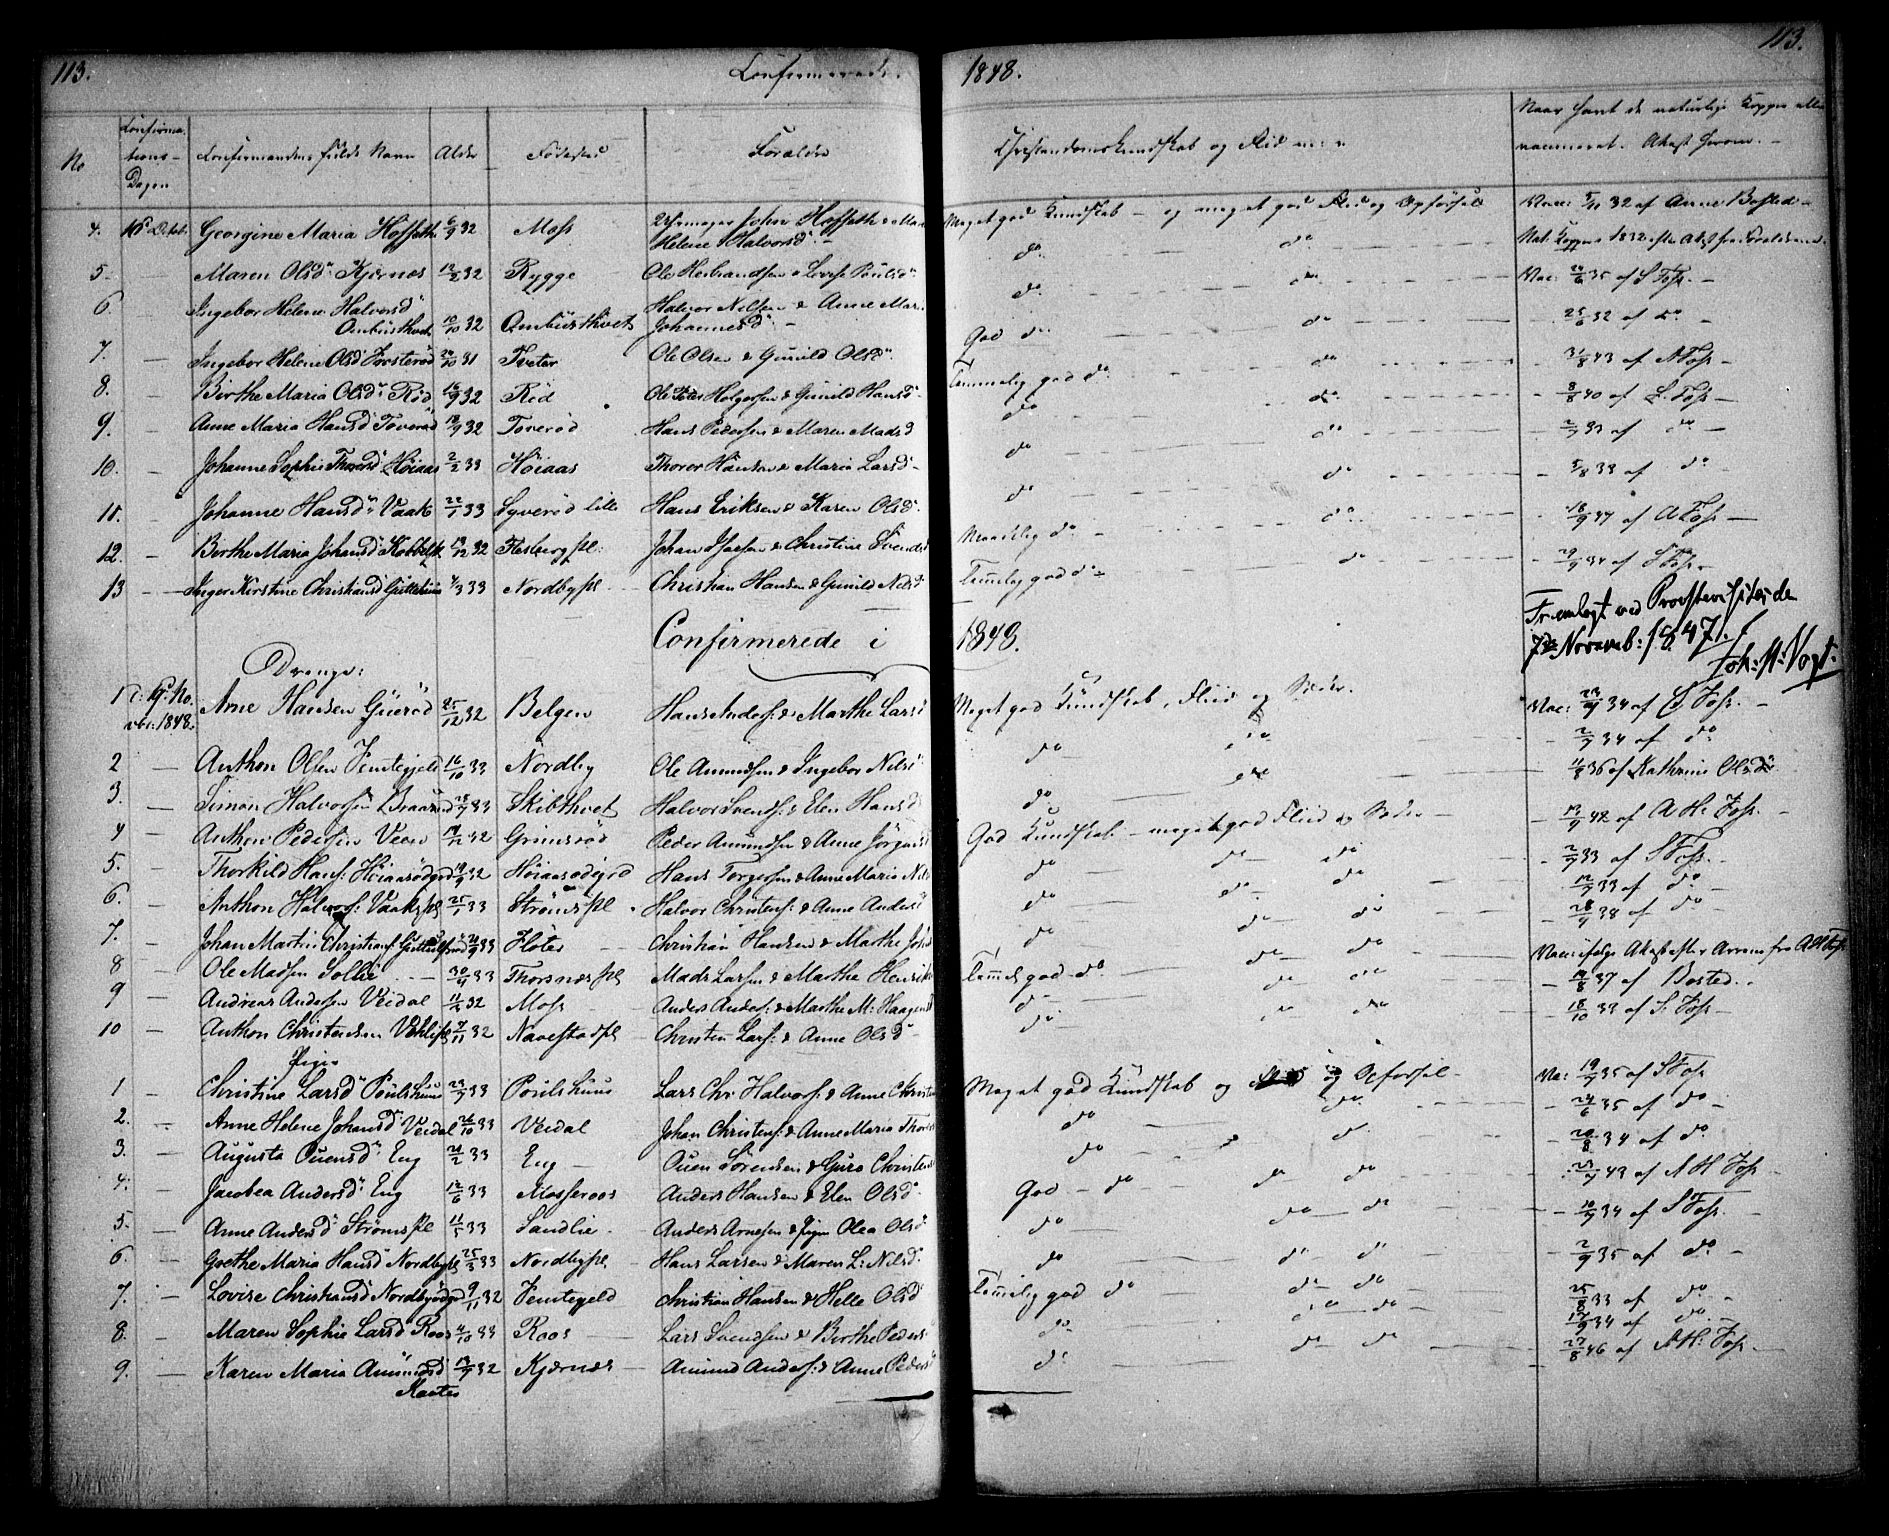 113. Confirmerede 1848. 113.
No Confirmations-Dagen Confirmandens fulde Navn Alder Fødested Forældre Christendomskundskab og Flid Naar havt de naturlige Kopper eller vaccineret. Attest herom.
4. 16 Octob. Georgine Maria Hoffeth 6/9 32 Moss John Hoffeth & Helene Halvorsd. Meget god Kundskab og meget god Flid og Opførsel Vacc: 5/11 32 af Anne Bosted
5. — Maren Olsd. Kjærnæs 12/2 32 Rygge Ole Herbrandsen & do do Nat. Kopper 1832 efter Attest fra Forældrene
6 — Ingebor Helene Halvorsd Ombusthvet 10/10 32 Ombusthvet Halvor Nilsen & Anne Mari Johannesd. do do Vac: 20/6 35 af S Foss
7. — Ingebor Helene Olsd 20/10 31 Tveter Ole Olsen & Gunild Olsd. God do do 25/6 32 af do
8. — Birthe Maria Olsd. Rød 16/9 32 Rød Ole Holgersen & Gunild Hansd. Temmelig god do do 31/8 43 A Foss
9. — Anne Maria Hansd Toverød 18/9 32 Toverød Hans Pedersen & Maren Madsd do do 8/8 40 af S. Foss
10. — Johanne Sophie Thorersd Høiaas 2/2 33 Høiaas Thorer Hansen & Maria Larsd do do 2/9 33 af do
11. — Johanne Hansd. Vaak 22/1 33 Syverød lille Hans Eriksen & Karen Olsd. do do 5/8 33 af do
12. — Berthe Maria Johansd: 19/12 32 Flesberg pl: Johan & Christine Svendsd Maadelig do do 18/9 37 af A Foss
13 — Inger Kirstine Christiansd 4/3 33 Nordby pl Christian Hansen & Gunild Nilsd Temmelig god do do 29/9 34 af S Foss
Fremlagt ved Provstevisitatsen de
7de Novemb: 1847.
Joh: H: Vogt.
Confirmerede i 1848.
Drenge:
1 d: 19. No vbr: 1848. Arne Hansen Guerød 25/12 32 Belgen Hans Anders: & Marthe Larsd Meget god Kundskab, Fliid og Sæder. Vac: 23/9 34 af S Foss.
2 — Anthon Olsen Ventegjeld 16/10 33 Nordby Ole Amundsen & Ingebor Nilsd do do 2/9 34 af do
3. — Simon Halvorsen Braarud 28/9 33 Skibthvet Halvor Svends: & Elen Hansd do do 11/8 36 af Kathrine Olsd
4 — Anthon Pedersen Veen 14/12 32 Grimsrød Peder Amundsen & Anne Jørgensd God Kundskab — meget god Fliid og Sæder 13/9 42 af A. H: Foss.
5. — Thorkild Hans: Høiaasødegrd 19/9 32 Høiaasødegrd Hans Torgersen & Anne Maria Nils do do do 2/9 33 af S Foss.
6. — Anthon Halvors: Vaakpl 25/1 33 Strømspl Halvor Christens: & Anne Andersd do do do 12/9 33 af do
7. — Johan Martin Christians 21/9 33 Floter Christian Hansen & Marthe do do do 28/9 38 af do
8 — Ole Madsen Sollie 30/4 33 Thorsnæs pl Mads Larsen & Marthe Henriksd Temmelig god do do Vac: ifølge Attest efter fra A H Foss
9 — Andreas Andersen Veidal 11/2 32 Moss Anders Anders: & Marthe M: Haagensd do do do 19/8 37 af Bosted.
10 — Anthon Christensen 4/11 32 Navestadpl Christen Lars: & Anne Olsd do do do 18/10 33 af S. Foss
Piger
1 — Christine Larsd Poulshuus 23/9 33 Poulshuus Lars Chr. Halvors: & Anne Christens Meget god Kundskab og Flid og Opførsel Vac: 19/9 35 af S Foss
2. — Anne Helene Johansd: Veidal 26/10 33 Veidal Johan Christens: & Anne Maria do do 24/6 35 af do
3. — Augusta Ouensd. Eng 21/2 33 Eng Ouen Sørensen & Guro Christensd do do 20/8 34 af do
4. — Jacobea Andersd. Eng 12/6 33 Mosseroos Anders Hansen & Elen Olsd. God — do do do 23/9 43 af A H Foss
5. — Anne Andersd Strømspl 11/5 33 Sandlie Anders Arnesen & Pigen Olea Olsd do do do 10/9 34 af S Foss.
6. — Grethe Maria Hansd Nordbypl 25/5 33 Nordbypl Hans Larsen & Maren L: Nilsd do do do 2/9 35 af do
7. — Lovise Christiansd Nordbyødegd 9/11 32 Ventegeld Christian Hansen & Helle Olsd Temmelig god do do do 25/8 33 af do
8. — Maren Sophie Larsd Roos 4/10 33 Roos Lars Svendsen & Berthe Peders do do do 12/9 34 af do
9. — Karen Maria Amundsd 13/9 32 Kjærnæs Amund Anders: & Anne Pedersd do do do 27/8 46 af A. H: Foss.